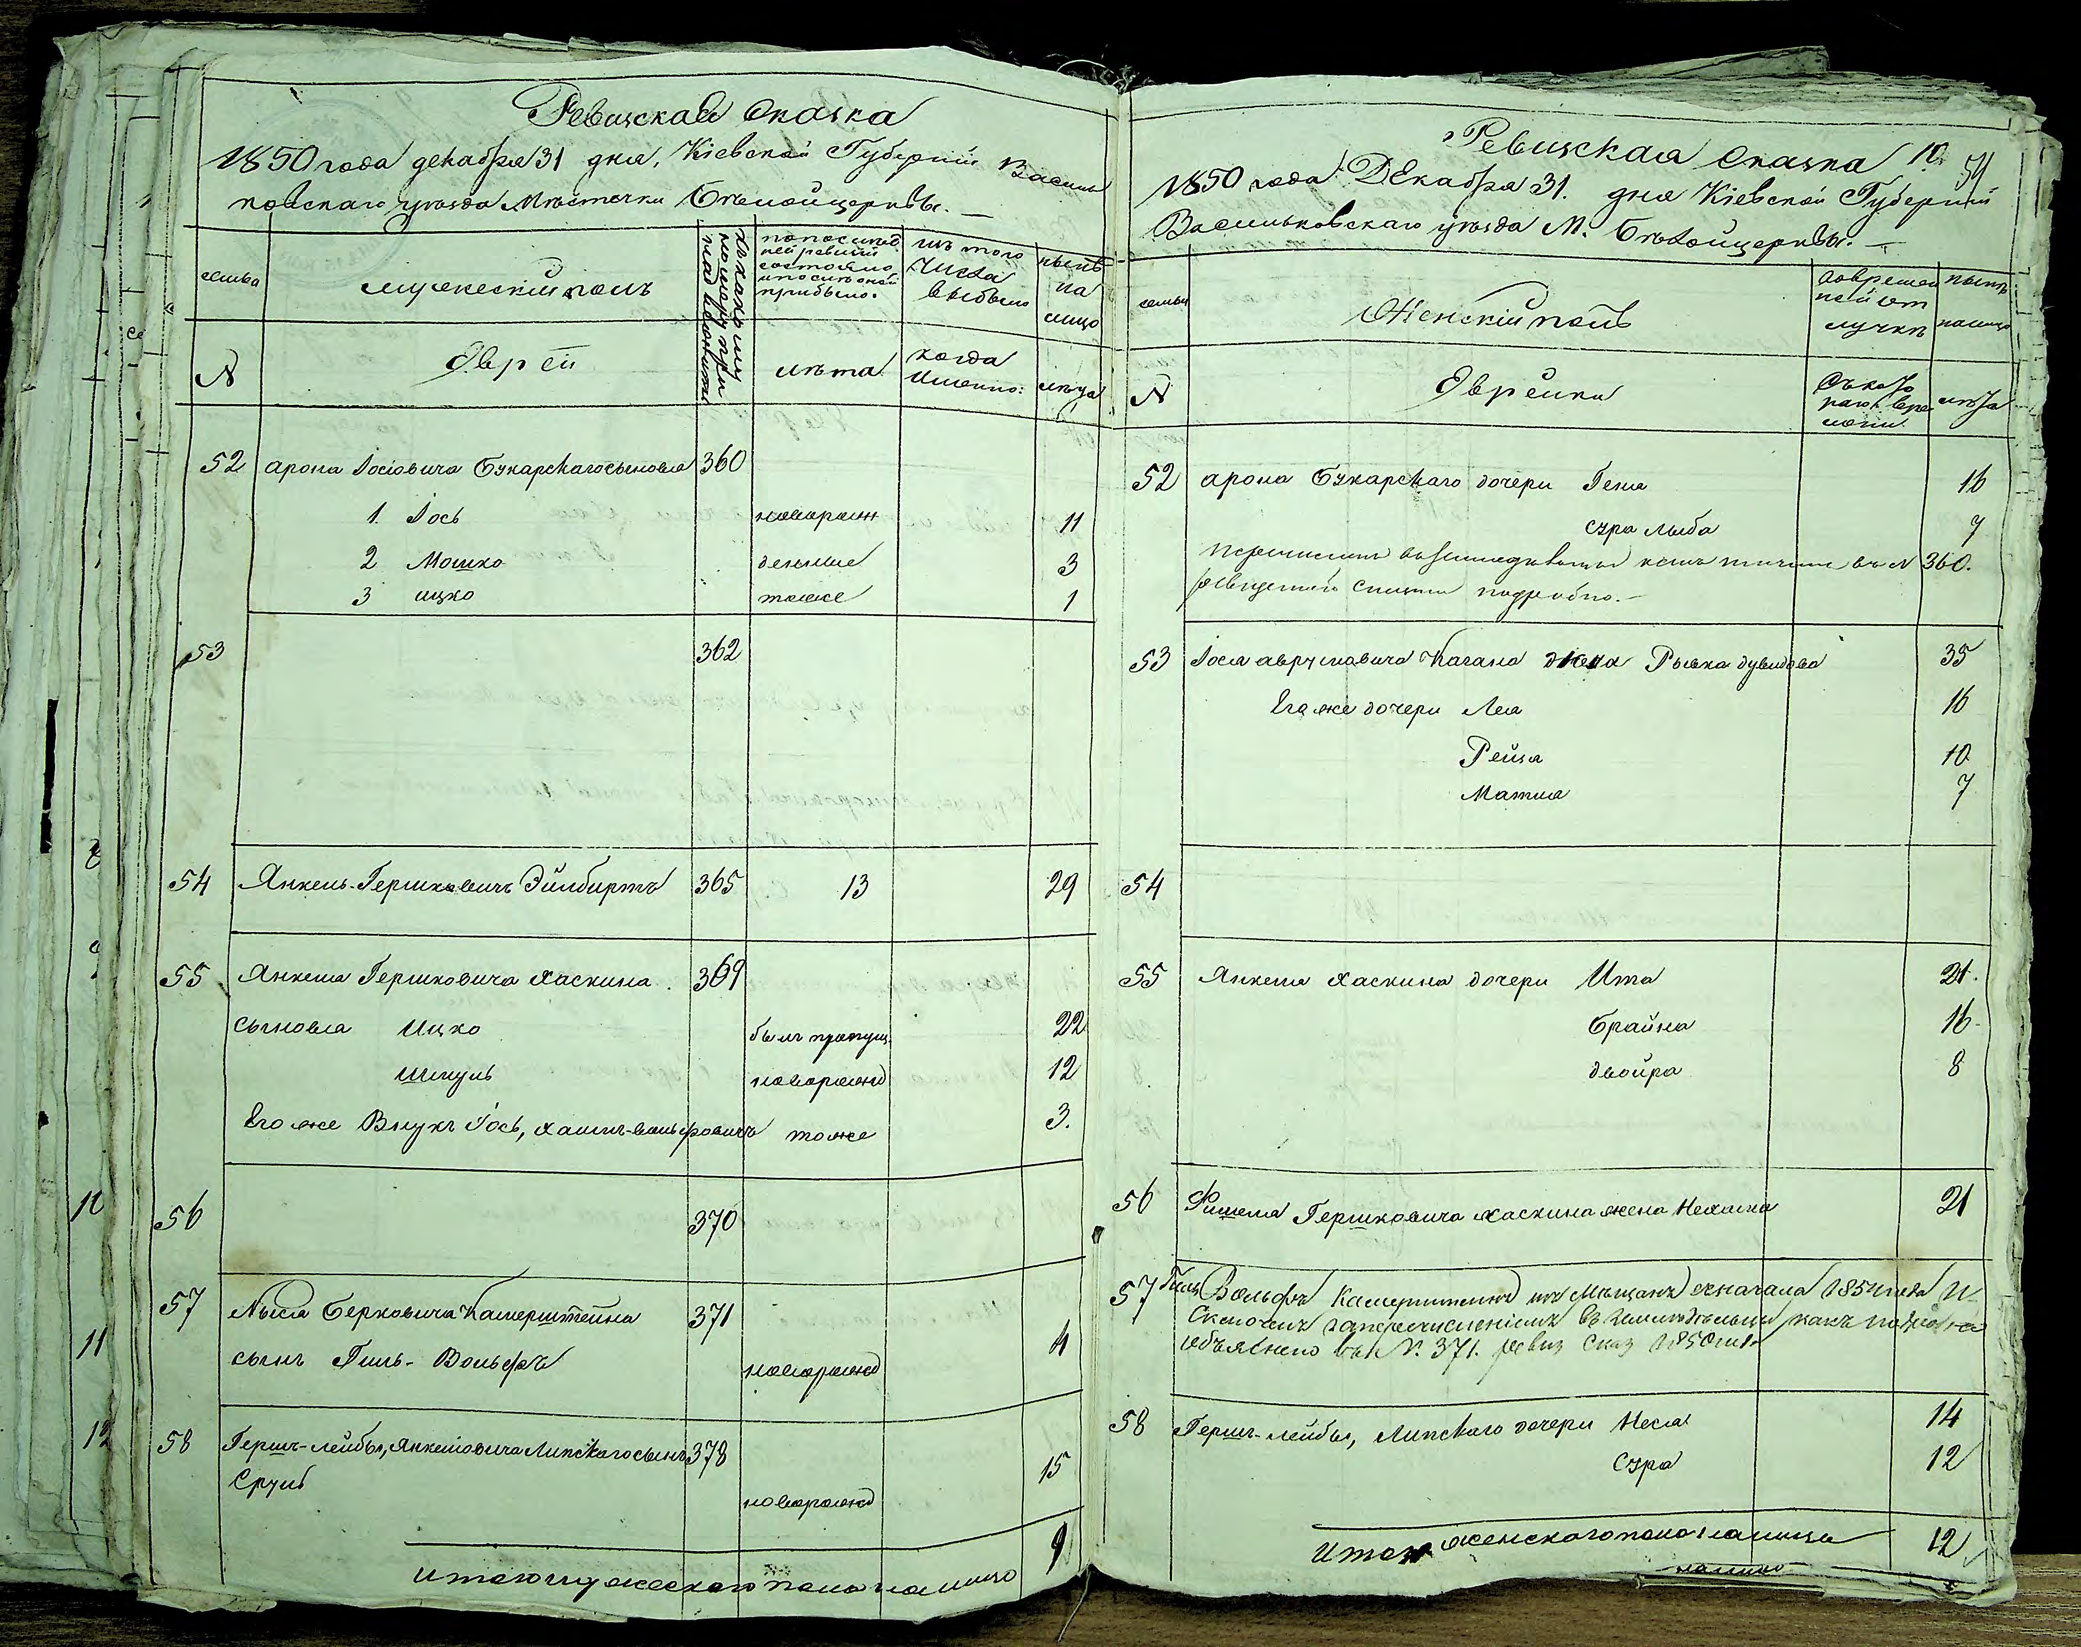 Ревизская Сказка
1850 года декабря 31 дня, Кіевской Губерніи Василь
ковскаго уѣзда Мѣстечки Бѣлойцерквы.
семьи
мужескій полъ
по последней ревизіи состояло и после оной прибыло.
изъ того числа выбыло
нынѣ на лицо
N
Евреи
лѣта
когда именно:
лѣта
52 Арона Іосіовича Бухарскаго сыновья 360
1. Іось новорожд 11
2 Мошко денные 3
3 ицко тоже 1
53 362
54 Янкель Гершковичъ Эйлбиртъ 365 13 29
55 Янкеля Гершковича Хаскина. 369
сыновья Ицко былъ пропущ. 22
Шмуль новорожд 12
Его же Внукъ Іось, Хаимъ-вольфовичъ тоже 3.
56 370
57 Мыся Берковича Камерштейна 371
сынъ Гиль-Вольфъ новорожд 4
58 Гершъ-лейбы, Янкелювича Липскаго сынъ 378
Сруль новорожд 15
Итого мужескаго пола на лицо 9
Ревизская Сказка 10. 54
1850 года Декабря 31. дня Кіевской Губерніи
Васильковскаго уѣзда М. Бѣлойцерквы.
семьи
Женскій полъ
во временной отлучкѣ
нынѣ на лицо
N
Еврейки
Съ котораго времени
лѣта
52 Арона Бухарскаго дочери Геня 16
сура лыба 7
въ N 360.
подробно.
53 Іося аврумовича Кагана жена Рывка дувидова 35
Его же дочери Лея 16
Рейза 10
Матля 7
54
55 Янкеля Хаскина дочери Ита 21.
Брайна 16.
двойра 8
56 Фишеля Гершковича Хаскина жена Нехама 21
57 Гиль Вольфъ Камерштейнъ изъ Мѣщанъ съ начала 1854 года И
сключенъ за перечисленіемъ въ Земледѣльцы какъ
объяснено въ N. 371. ревиз сказ 1850 г.
58 Гершъ-лейбы, Липскаго дочери Неся 14
Сура 12
Итого женскаго пола на лицо 12